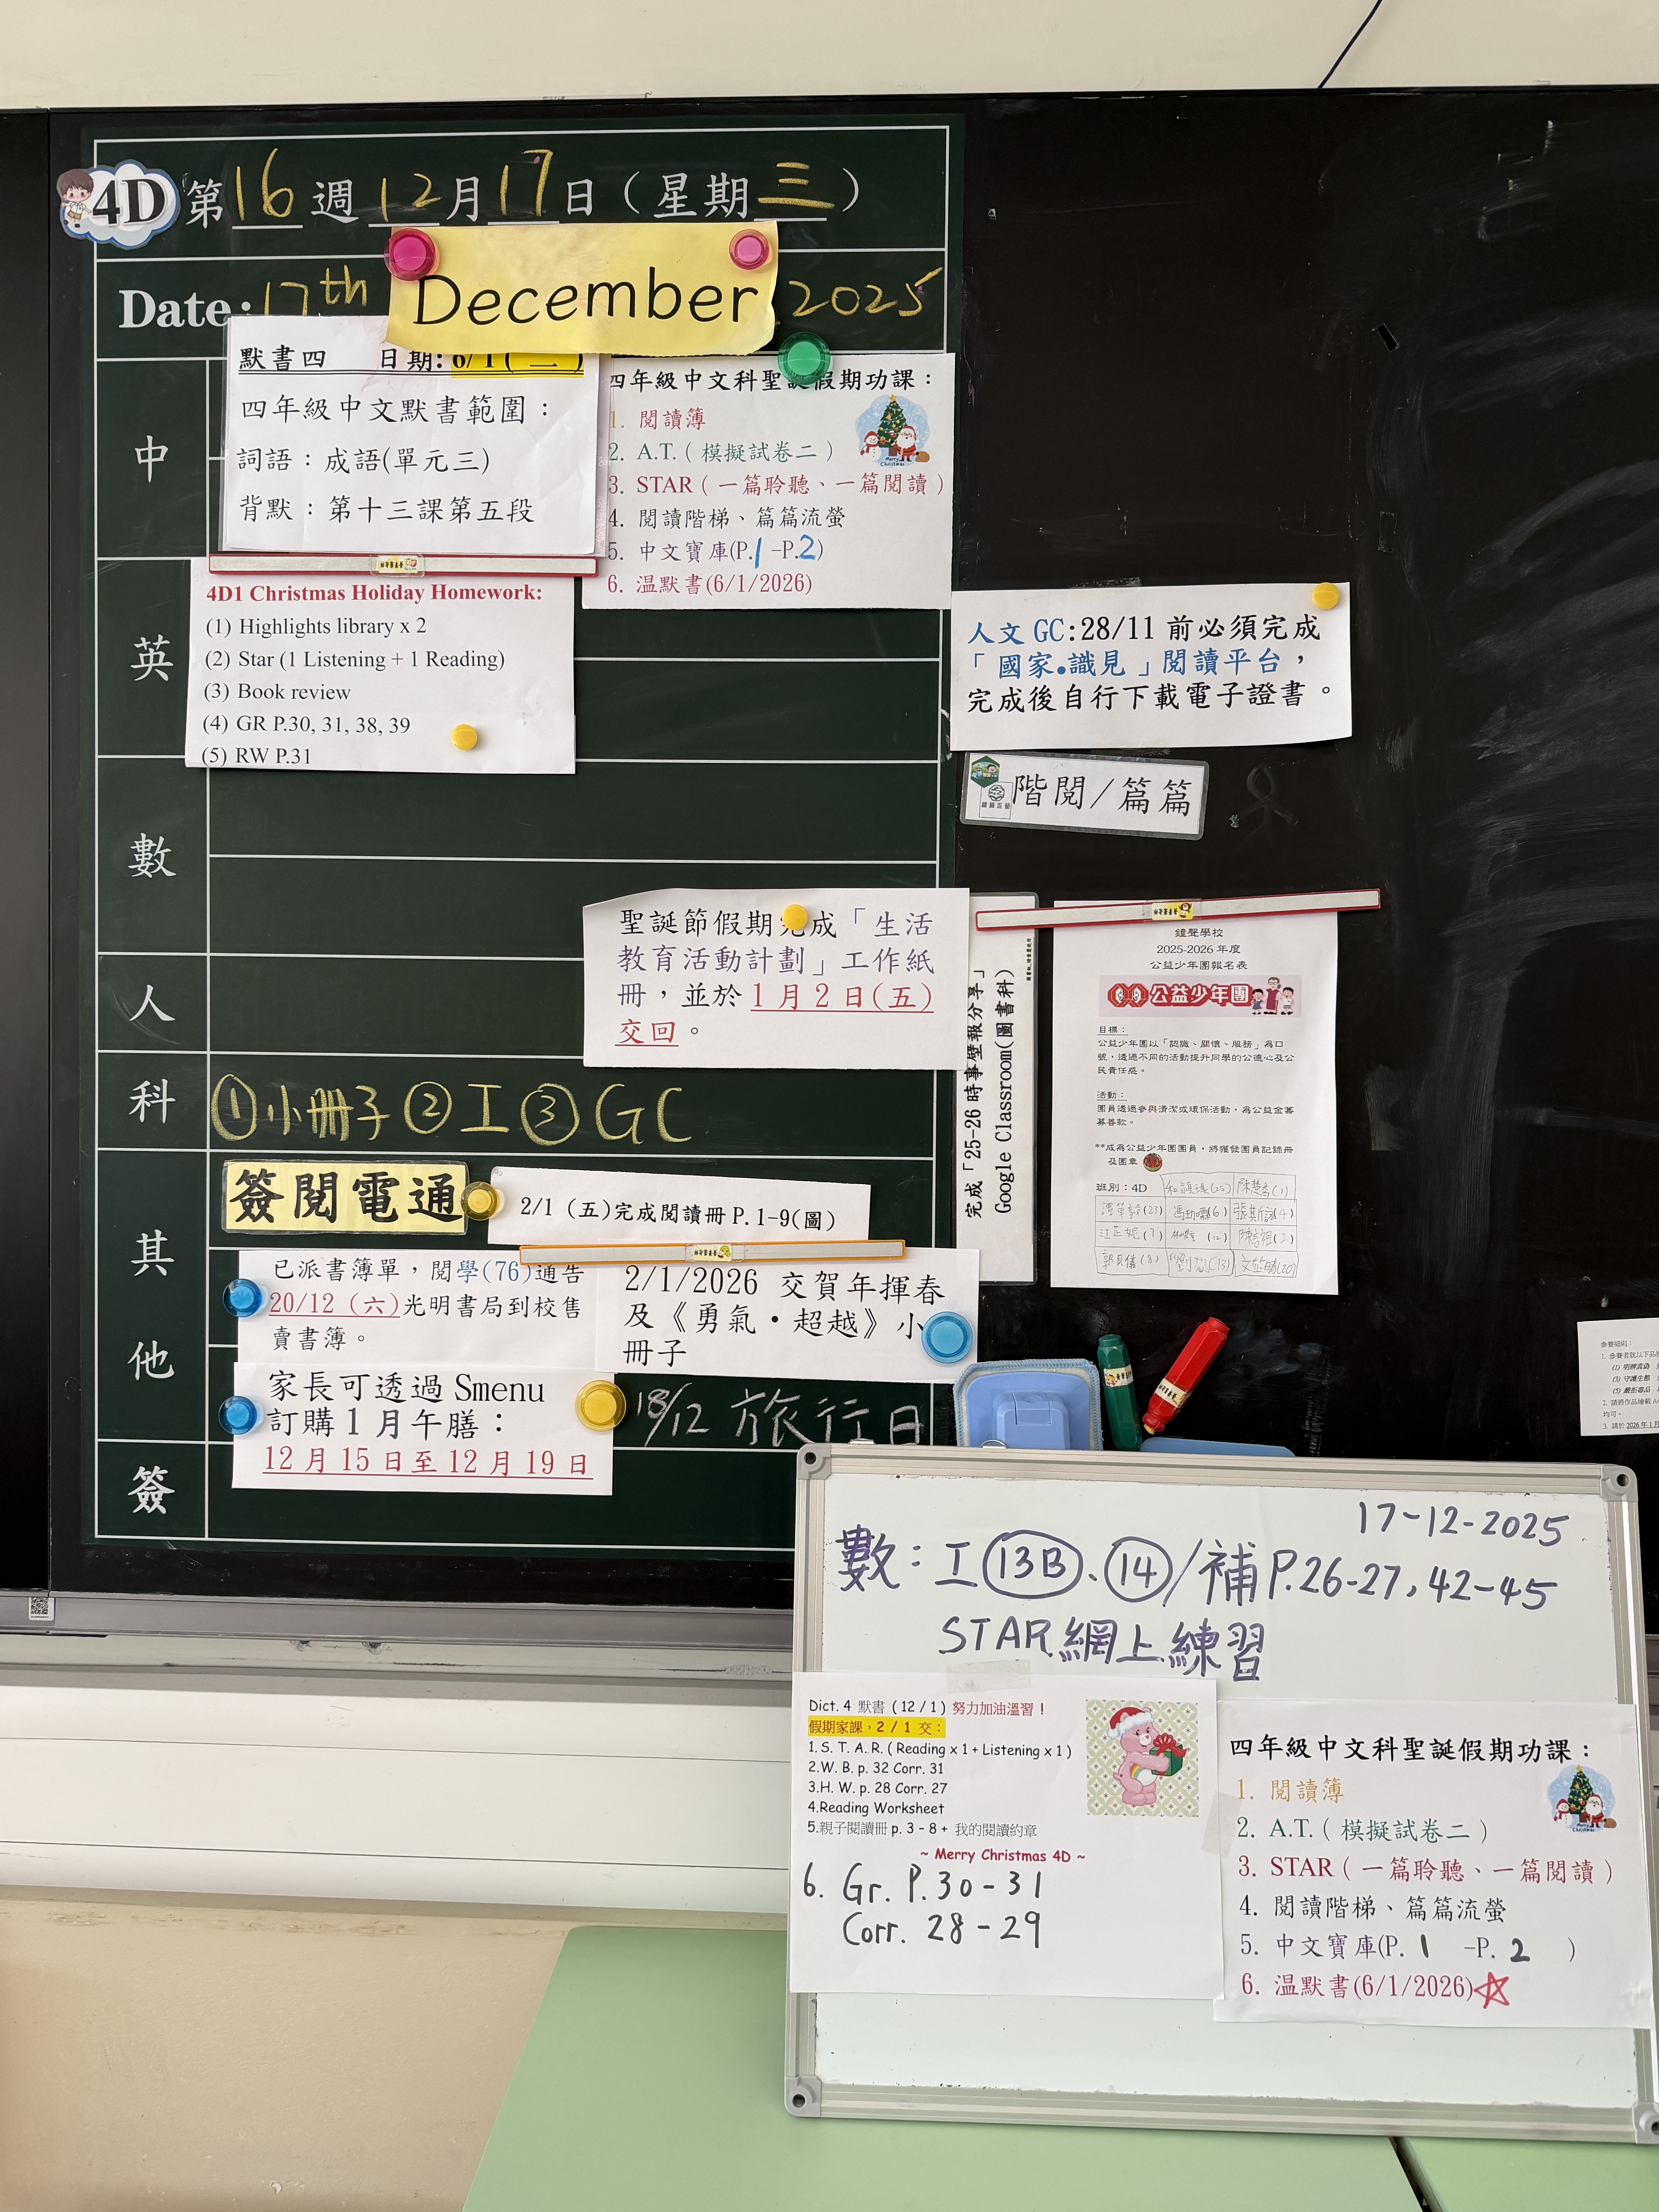 4D 第 16 週 12 月 17 日（星期 三）
Date: 17th December 2025
中
默書四 日期: 6/1(二)
四年級中文默書範圍：
詞語：成語(單元三)
背默：第十三課第五段
四年級中文科聖誕假期功課：
1. 閱讀簿
2. A.T.（模擬試卷二）
3. STAR（一篇聆聽、一篇閱讀）
4. 閱讀階梯、篇篇流螢
5. 中文寶庫(P.1-P.2)
6. 温默書(6/1/2026)
英
4D1 Christmas Holiday Homework:
(1) Highlights library x 2
(2) Star (1 Listening + 1 Reading)
(3) Book review
(4) GR P.30, 31, 38, 39
(5) RW P.31
人文 GC:28/11 前必須完成
「國家•識見」閱讀平台，
完成後自行下載電子證書。
階閱/篇篇
數
人
聖誕節假期完成「生活
教育活動計劃」工作紙
冊，並於 1 月 2 日(五)
交回。
科
①小冊子②工③GC
完成「25-26 時事壁報分享」
Google Classroom(圖書科)
鐘聲學校
2025-2026 年度
公益少年團報名表
公益少年團
目標：
公益少年團以「認識、關懷、服務」為口
號，透過不同的活動提升同學的公德心及公
民責任感。
活動：
團員透過參與清潔或環保活動，為公益金籌
募善款。
**成為公益少年團團員，將獲發團員記錄冊
及團章
班別：4D
其
他
簽閱電通
2/1 (五)完成閱讀冊 P.1-9(圖)
已派書簿單，閱學(76)通告
20/12 (六)光明書局到校售
賣書簿。
2/1/2026 交賀年揮春
及《勇氣•超越》小
冊子
家長可透過 Smenu
訂購 1 月午膳：
12 月 15 日至 12 月 19 日
18/12 旅行日
簽
參賽細則：
17-12-2025
數：工 13B、14/補 P.26-27, 42-45
STAR 網上練習
Dict. 4 默書 (12 / 1) 努力加油溫習！
假期家課，2 / 1 交：
1. S. T. A. R. ( Reading x 1 + Listening x 1 )
2.W. B. p. 32 Corr. 31
3.H. W. p. 28 Corr. 27
4.Reading Worksheet
5.親子閱讀冊 p. 3 - 8 + 我的閱讀約章
~ Merry Christmas 4D ~
6. Gr. P.30-31
Corr. 28-29
四年級中文科聖誕假期功課：
1. 閱讀簿
2. A.T.（模擬試卷二）
3. STAR（一篇聆聽、一篇閱讀）
4. 閱讀階梯、篇篇流螢
5. 中文寶庫(P. 1 -P. 2 )
6. 温默書(6/1/2026)